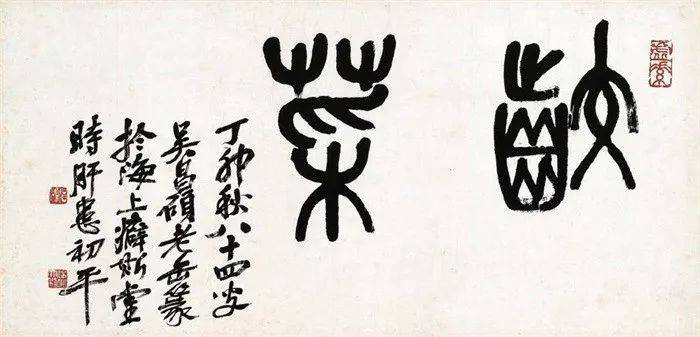 齩菜
丁卯秋八十四叟
吳昌碩老缶篆
於海上癖斯堂
時肝恙初平